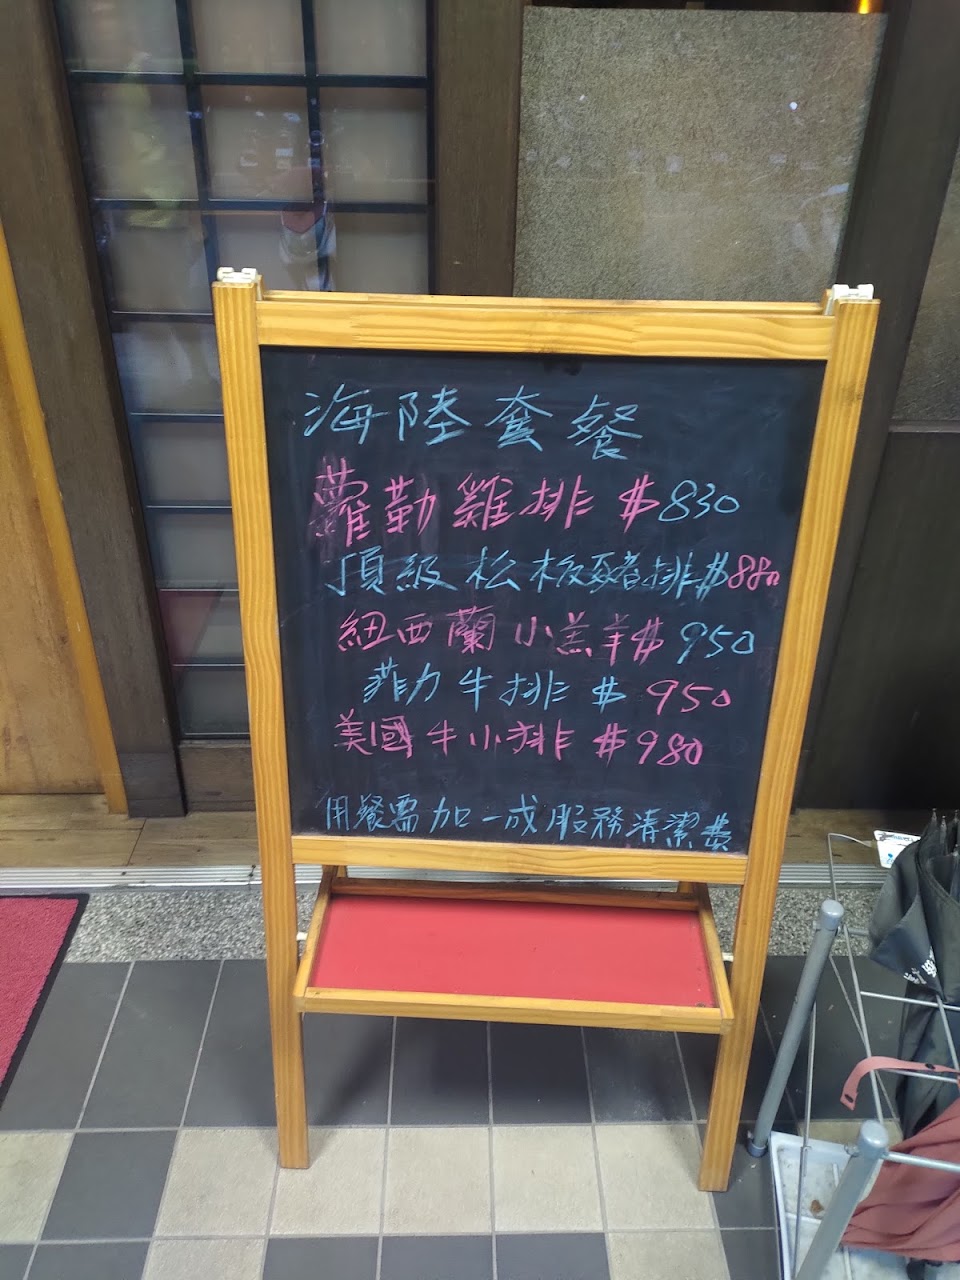 海陸套餐
蘿勒雞排 $830
頂級松板豬排$880
紐西蘭小羔羊$950
菲力牛排 $950
美國牛小排 $980
用餐需加一成服務清潔費